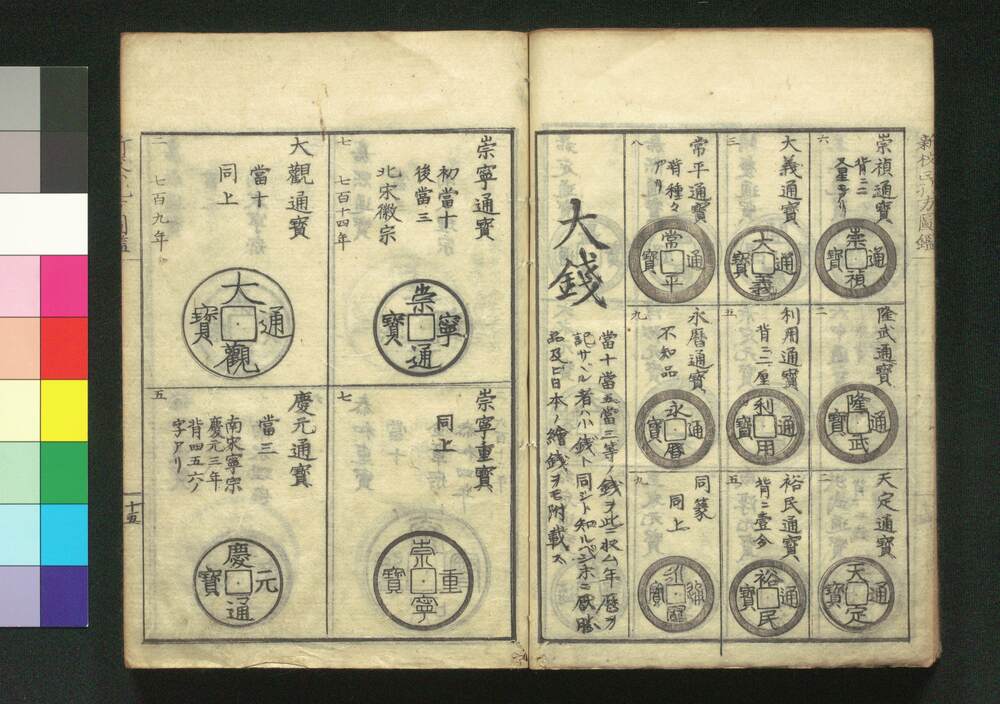 六
崇禎通寳
背ニ二
又星アリ
崇禎通寳
三
大義通寳
大義通寳
八
常平通寳
背種々
アリ
常平通寳
二
隆武通寳
隆武通寳
五
利用通寳
背ニ二厘
利用通寳
九
永暦通寳
不知品
永暦通寳
二
天定通寳
天定通寳
五
裕民通寳
背ニ壹分
裕民通寳
九
同篆
同上
永曆通寳
大錢
當十當五當三等ノ錢ヲ此ニ収ム年曆ヲ
記サヾル者ハ小錢ト同シト知ルベシ亦ニ厭勝
品及ヒ日本ノ繪錢ヲモ附載ス
七
崇寧通寳
初當十
後當三
北宋徽宗
七百十四年
崇寧通寳
二
大觀通寳
當十
同上
七百九年
大觀通寳
七
崇寧重寳
同上
崇寧重寳
五
慶元通寳
當三
南宋寧宗
慶元三年
背四五六ノ
字アリ
慶元通寳
十五